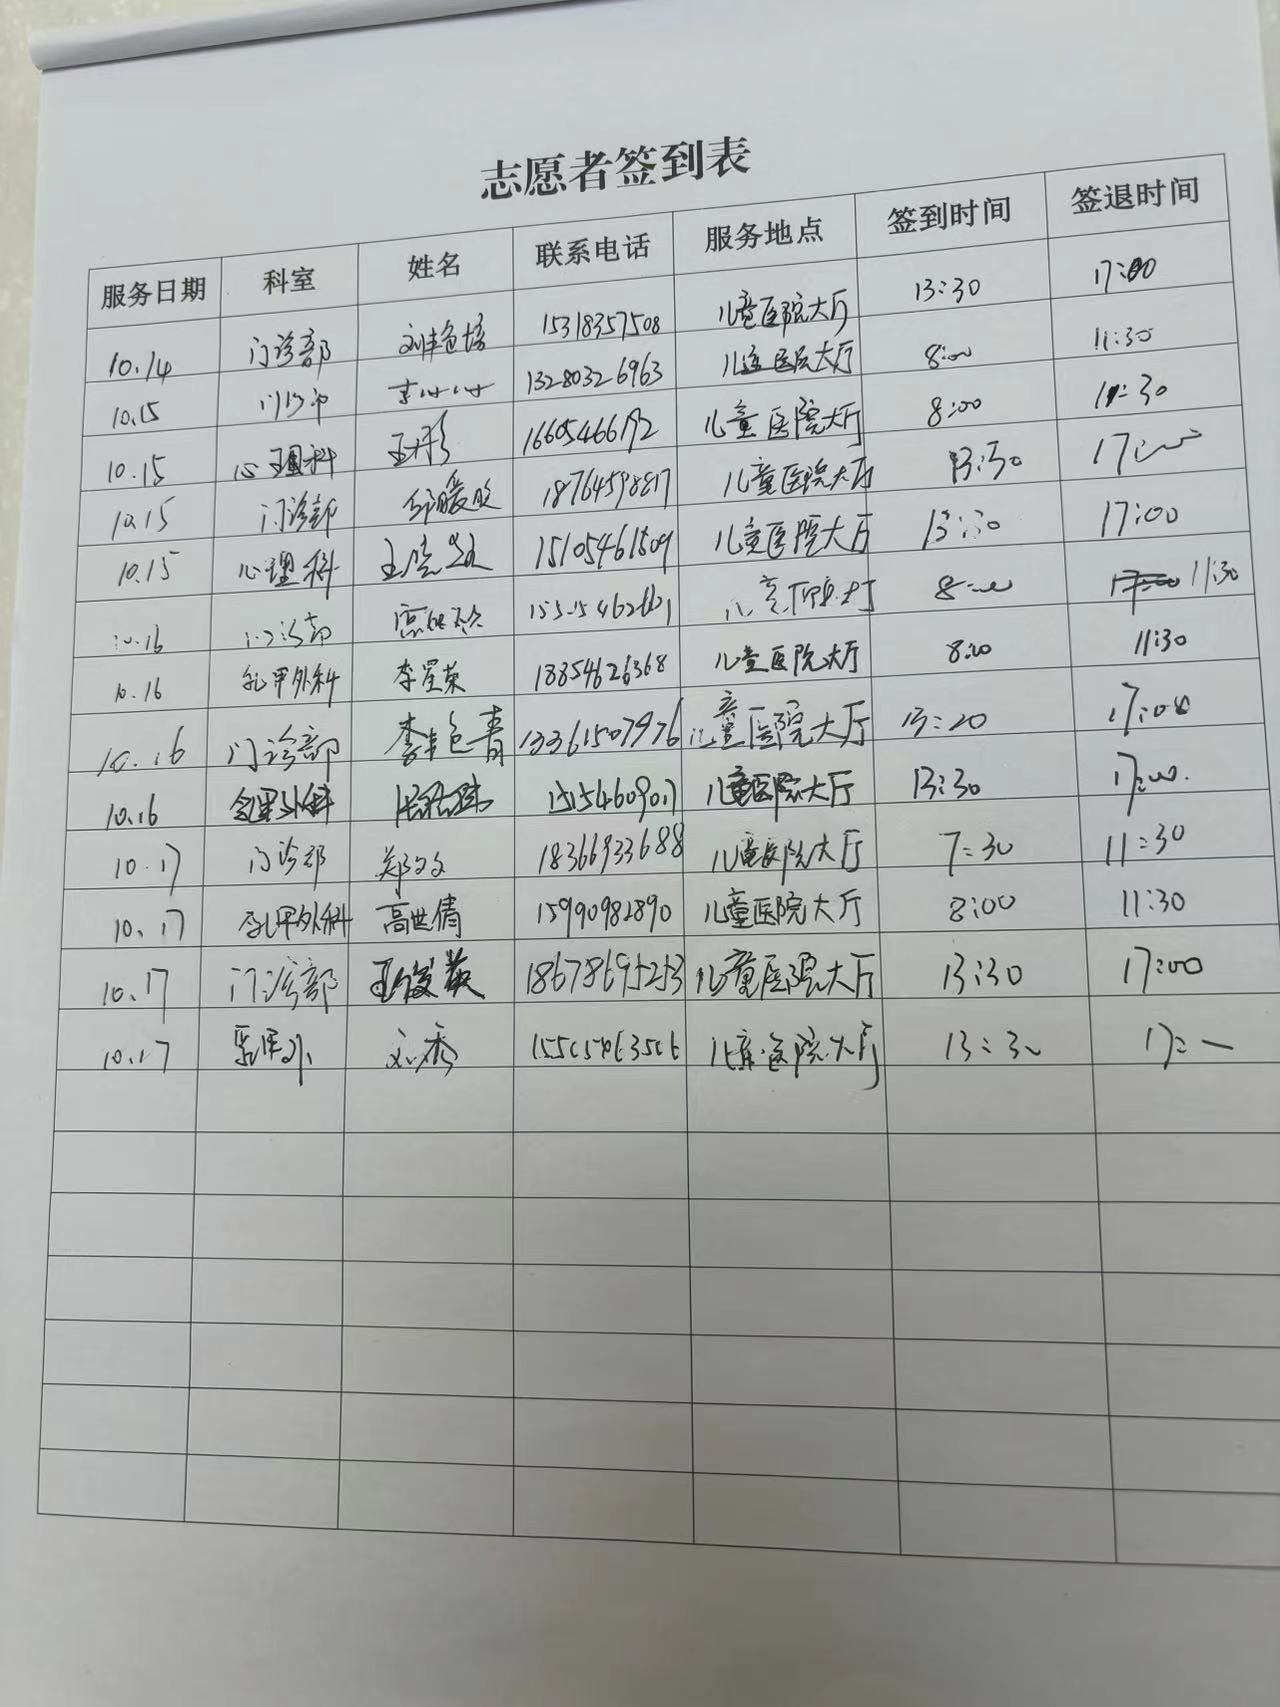 志愿者签到表
服务日期 科室 姓名 联系电话 服务地点 签到时间 签退时间
10.14 门诊部 刘艳培 15318357508 儿童医院大厅 13:30 17:00
10.15 门诊部 13280326963 儿童医院大厅 8:00 11:30
10.15 心理科 王彤 16605466192 儿童医院大厅 8:00 11:30
10.15 门诊部 邱暖 18764598817 儿童医院大厅 13:30 17:00
10.15 心理科 15105461509 儿童医院大厅 13:30 17:00
10.16 门诊部 8:00 11:30
10.16 乳甲外科 李星荣 18854626368 儿童医院大厅 8:00 11:30
10.16 门诊部 李艳青 13361507976 儿童医院大厅 13:20 17:00
10.16 乳甲外科 15154609017 儿童医院大厅 13:30 17:00
10.17 门诊部 郑文文 18366933688 儿童医院大厅 7:30 11:30
10.17 乳甲外科 高世倩 15990982890 儿童医院大厅 8:00 11:30
10.17 门诊部 王俊英 18678695253 儿童医院大厅 13:30 17:00
10.17 乳甲外 刘秀 儿童医院大厅 13:30